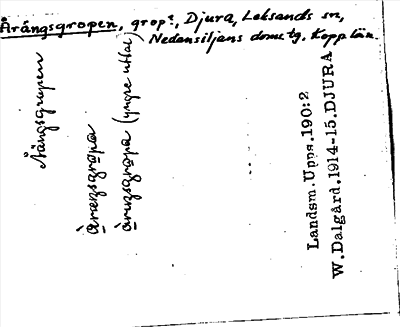 Årångsgropen, grop?, Djura, Leksands sn,
Nedansiljans doms tg. Kopp. län.
Årängsgropen
(yngre uttal)
Landsm. Upps. 190:2
W. Dalgård. 1914-15. DJURA